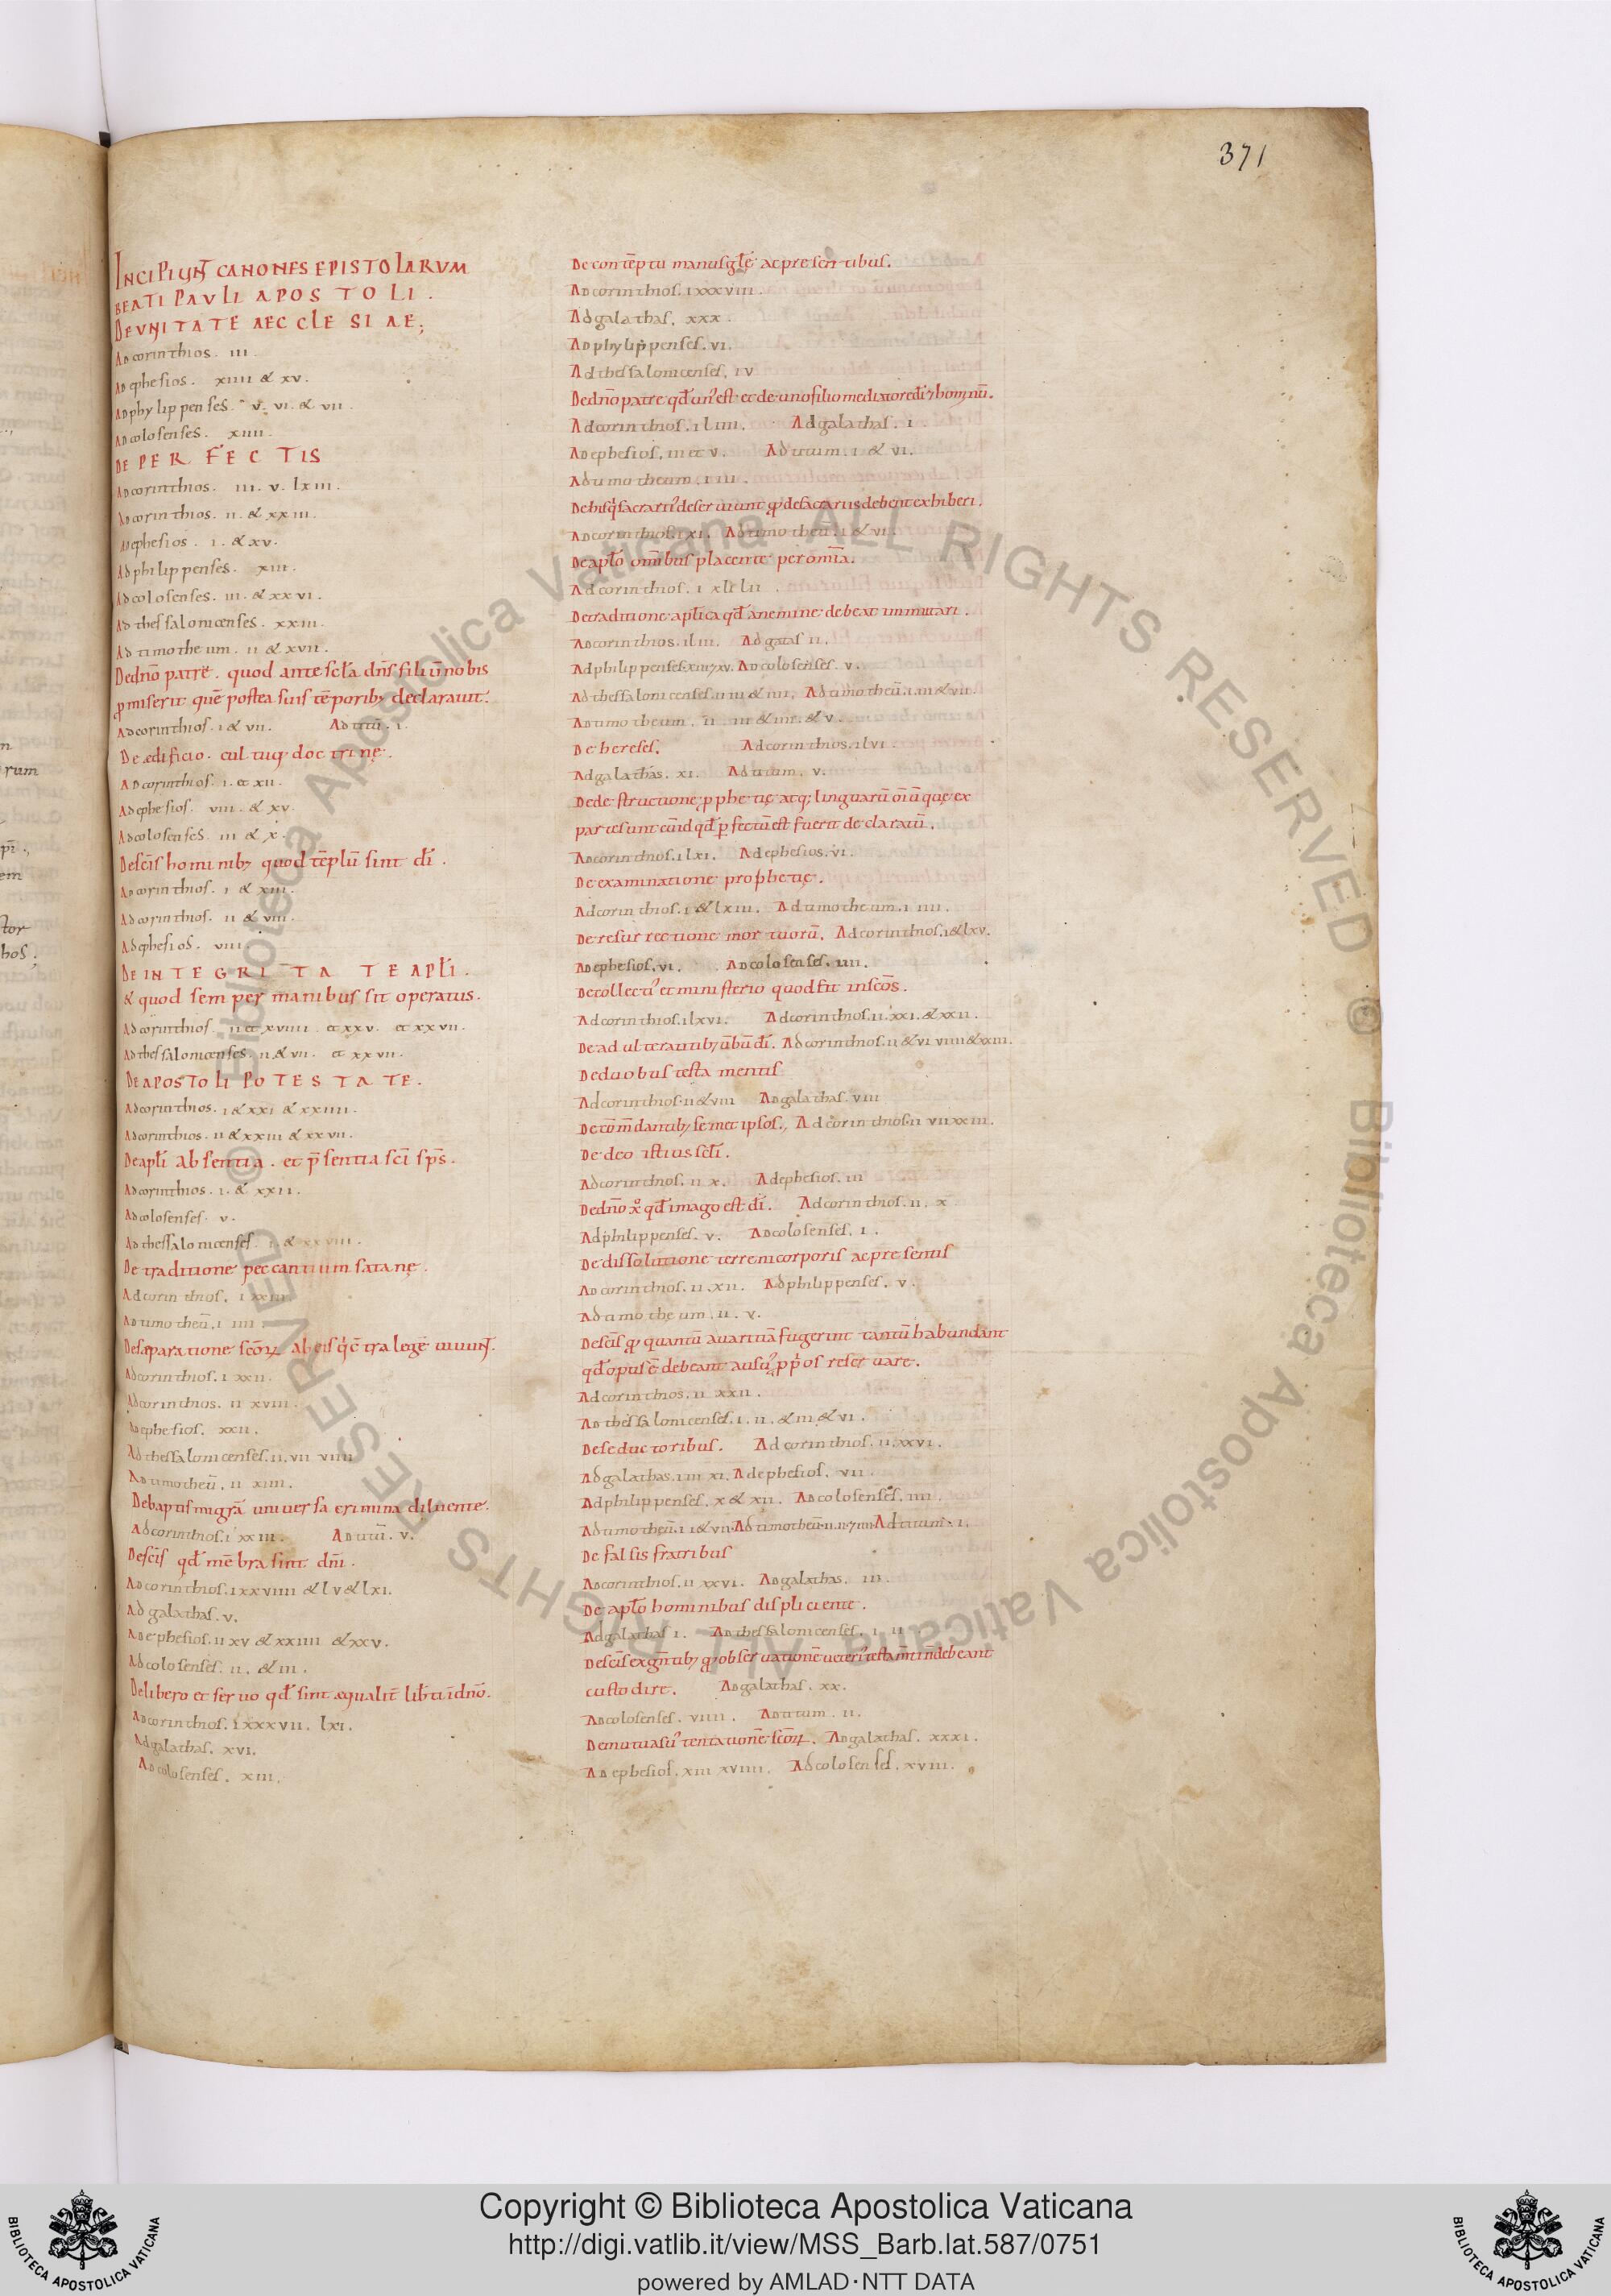 371
INCIPIUNT CANONES EPISTOLARUM
BEATI PAULI APOSTOLI.
DE UNITATE AECCLESIAE;
Ad corinthios. III.
Ad ephesios. XIIII & XV.
Ad phylippenses. V. VI. & VII.
Ad colosenses. XIIII.
DE PERFECTIS
Ad corinthios. III. V. LXIII.
Ad corinthios. II. & XXIII.
Ad ephesios. I. & XV.
Ad philippenses. XIII.
Ad colosenses. III. & XXVI.
Ad thessalonicenses. XXIII.
Ad timotheum. II & XVII.
De dn̄o patre. quod ante scl̄a dn̄s filiū nobis
ꝓmiserit quē postea suis tēporibꝫ declarauit.
Ad corinthios. I & VII. Ad titū. I.
De ædificio. cultuq; doctrinę.
Ad corinthios. I. et XII.
Ad ephesios. VIII. & XV.
Ad colosenses. III & X.
De scīs hominibꝫ quod tēplū sint dī.
Ad corinthios. I & XIII.
Ad corinthios. II & VIII.
Ad ephesios. VIII.
DE INTEGRITATE APLĪ.
& quod semper manibus sit operatus.
Ad corinthios. II et XVIIII. et XXV. et XXVII.
Ad thessalonicenses. II & VII. et XXVII.
DE APOSTOLI POTESTATE.
Ad corinthios. I & XXI & XXIIII.
Ad corinthios. II & XXIII & XXVII.
De aplī absentia. et p̄sentia scī sp̄s.
Ad corinthios. I. & XXII.
Ad colosenses. V.
Ad thessalonicenses. I. & XXVIII.
De traditione peccantium satanę.
Ad corinthios. I XXIII.
Ad timotheū. I IIII.
De sæparatione scōꝝ ab eis q̇ c̄tra legē uiuunt.
Ad corinthios. I XXII.
Ad corinthios. II XVIII.
Ad ephesios. XXII.
Ad thessalonicenses. II. VII VIIII
Ad timotheū. II XIIII.
De baptismi gr̄a uniuersa crimina diluente.
Ad corinthios. I XXIII. Ad titū. V.
De scīs qd̄ mēbra sint dn̄i.
Ad corinthios. I XXVIIII & LV & LXI.
Ad galathas. V.
Ad ephesios. II XV & XXIIII & XXV.
Ad colosenses. II. & III.
De libero et seruo qd̄ sint æqualit̄ lib̄ti ī dn̄o.
Ad corinthios. I XXXVII. LXI.
Ad galathas. XVI.
Ad colosenses. XIII.
De contēptu manus glē ac presentibus.
Ad corinthios. I XXXVIII.
Ad galathas. XXX.
Ad phylippenses. VI.
Ad thessalonicenses. IV
De dn̄o patre qd̄ un᾿ est et de uno filio mediatore dī ⁊ hominū.
Ad corinthios. I LIIII. Ad galathas. I.
Ad ephesios. III et V. Ad titum. I & VI.
Ad timotheum. I III.
De his q̇ sacrario deseruiunt qđ de sacrariis debent exhiberi.
Ad corinthios. I XI. Ad timotheū. I & VI.
De aplō omībus placente per omīa.
Ad corinthios. I XLI LII.
De traditione aplīca qd̄ a nemine debeat inmutari.
Ad corinthios. I LIII. Ad galatas II.
Ad philippenses. XIII ⁊ XV. Ad colosenses. V.
Ad thessalonicenses. II III & IIII. Ad timotheū. I. III & VII.
Ad timotheum. II. III & IIII. & V.
De hereses. Ad corinthios. I LVI.
Ad galathas. XI. Ad titum. V.
De destructione ꝓphetię atq; linguarū oīū quę ex
parte sunt cū id qd̄ ꝑfectū est fuerit declaratū.
Ad corinthios. I LXI. Ad ephesios. VI.
De examinatione prophetię.
Ad corinthios. I & LXIII. Ad timotheum. I IIII.
De resurrectione mortuorū. Ad corinthios. I & LXV.
Ad ephesios. VI. Ad colosenses. IIII.
De collectis et ministerio quod fit in scōs.
Ad corinthios. I LXVI. Ad corinthios. II. XXI. & XXII.
De adulterantibꝫ ūbū dī. Ad corinthios. II & VI VIIII & XXIII.
De duobus testamentis
Ad corinthios. II & VIII Ad galathas. VIII
De cōm̄dantibꝫ semet ipsos. Ad corinthios. II VII XXIII.
De deo istius sclī.
Ad corinthios. II X. Ad ephesios. III
De dn̄o xp̄o qd̄ imago est dī. Ad corinthios. II. X
Ad philippenses. V. Ad colosenses. I.
De dissolutione terreni corporis ac presentis
Ad corinthios. II. XII. Ad philippenses. V.
Ad timotheum. II. V.
De scīs qđ quantū auaritiā fugerint tantū habundant
qd̄ opus ē debeant ausus ꝓprios reseruare.
Ad corinthios. II XXII.
Ad thessalonicenses. I. II. & III & VI.
De seductoribus. Ad corinthios. II. XXVI.
Ad galathas. IIII XI. Ad ephesios. VII
Ad philippenses. X & XII. Ad colosenses. IIII.
Ad timotheū. I I & VII. Ad timotheū. II. II ⁊ IIII Ad titum. I.
De falsis fratribus
Ad corinthios. II XXVI. Ad galathas. III.
De aplō hominibus displicente.
Ad galathas I. Ad thessalonicenses. I II.
De scīs ex gentibꝫ qđ obseruationē ueteris testam̄ti n̄ debeant
custodire. Ad galathas. XX.
Ad colosenses. VIIII. Ad titum. II.
De mutua sustentatione scōꝝ. Ad galathas. XXXI.
Ad ephesios. XIII XVIIII. Ad colosenses. XVIII.
© Biblioteca Apostolica Vaticana ALL RIGHTS RESERVED © Biblioteca Apostolica Vaticana ALL RIGHTS RESERVED
Copyright © Biblioteca Apostolica Vaticana
http://digi.vatlib.it/view/MSS_Barb.lat.587/0751
powered by AMLAD·NTT DATA
BIBLIOTECA APOSTOLICA VATICANA
BIBLIOTECA APOSTOLICA VATICANA